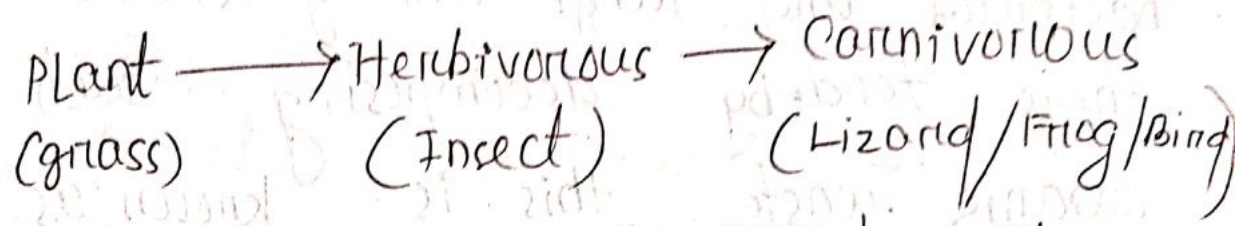 Plant → Herbivorous → Carnivorous
(grass) (Insect) (Lizard/Frog/Bird)